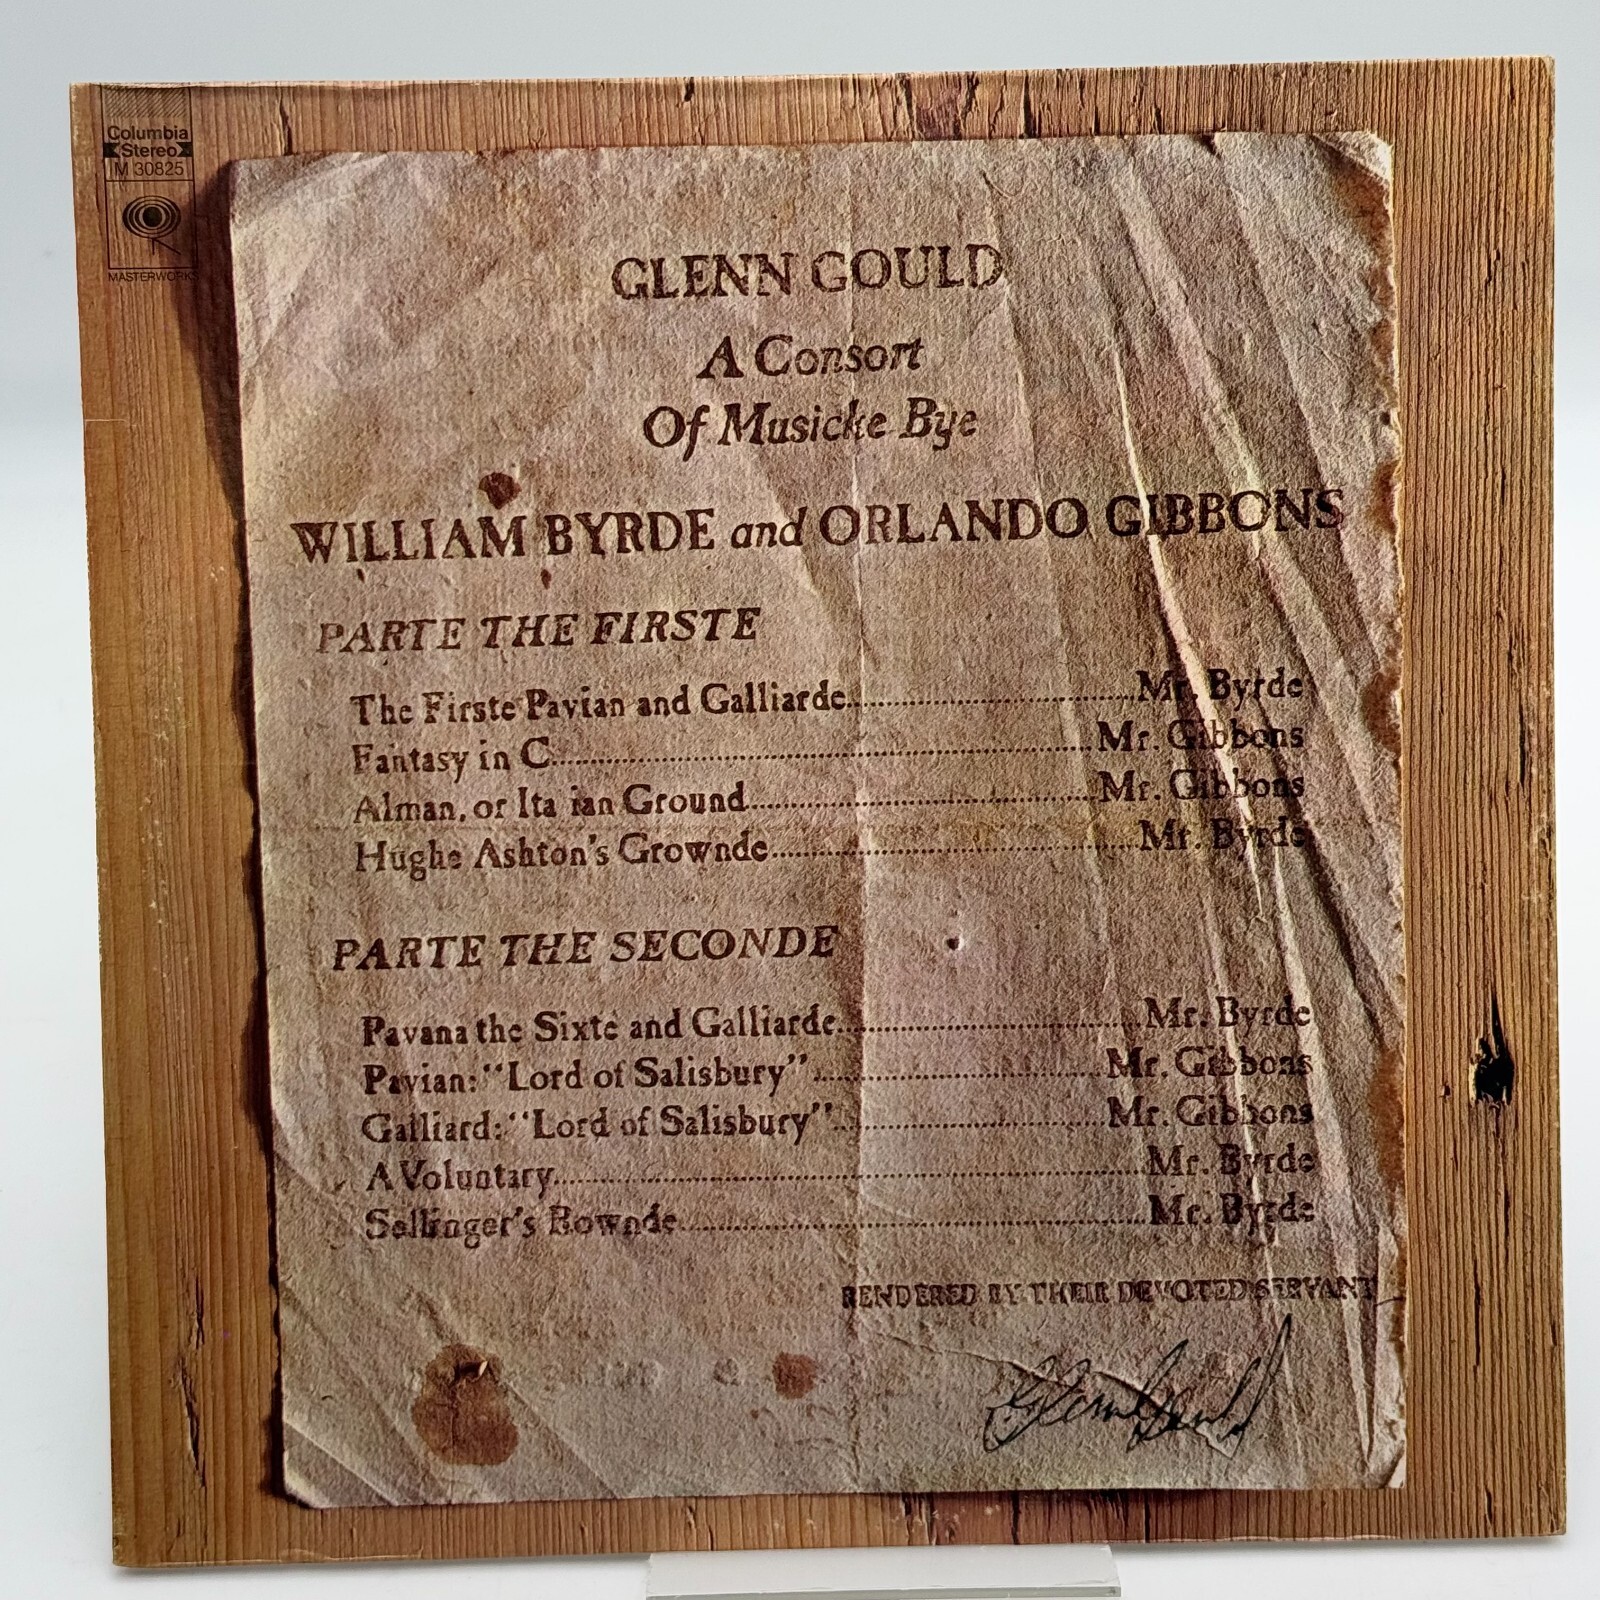 Columbia
Stereo
M 30825
MASTERWORKS
GLENN GOULD
A Consort
Of Musicke Bye
WILLIAM BYRDE and ORLANDO GIBBONS
PARTE THE FIRSTE
The Firste Pavian and Galliarde..............................Mr. Byrde
Fantasy in C..............................Mr. Gibbons
Alman, or Ita ian Ground..............................Mr. Gibbons
Hughe Ashton's Grownde..............................Mr. Byrde
PARTE THE SECONDE
Pavana the Sixte and Galliarde..............................Mr. Byrde
Pavian: "Lord of Salisbury"..............................Mr. Gibbons
Galliard: "Lord of Salisbury"..............................Mr. Gibbons
A Voluntary..............................Mr. Byrde
Sellinger's Rownde..............................Mr. Byrde
RENDERED BY THEIR DEVOTED SERVANT
Glenn Gould